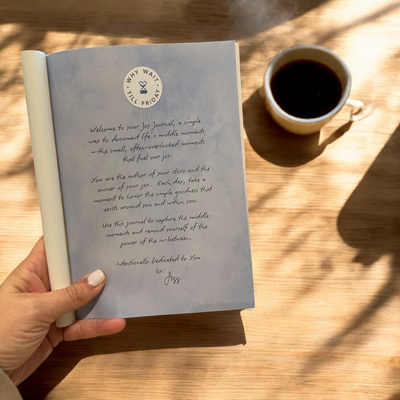 WHY WAIT
TILL FRIDAY
Welcome to your Joy Journal, a simple
way to document life's middle moments
—the small, often-overlooked moments
that fuel our joy.
You are the author of your story and the
owner of your joy. Each, day, take a
moment to honor the simple goodness that
exists around you and within you.
Use this journal to capture the middle
moments and remind yourself of the
power of the in-between.
Intentionally Dedicated to You
by: Jess